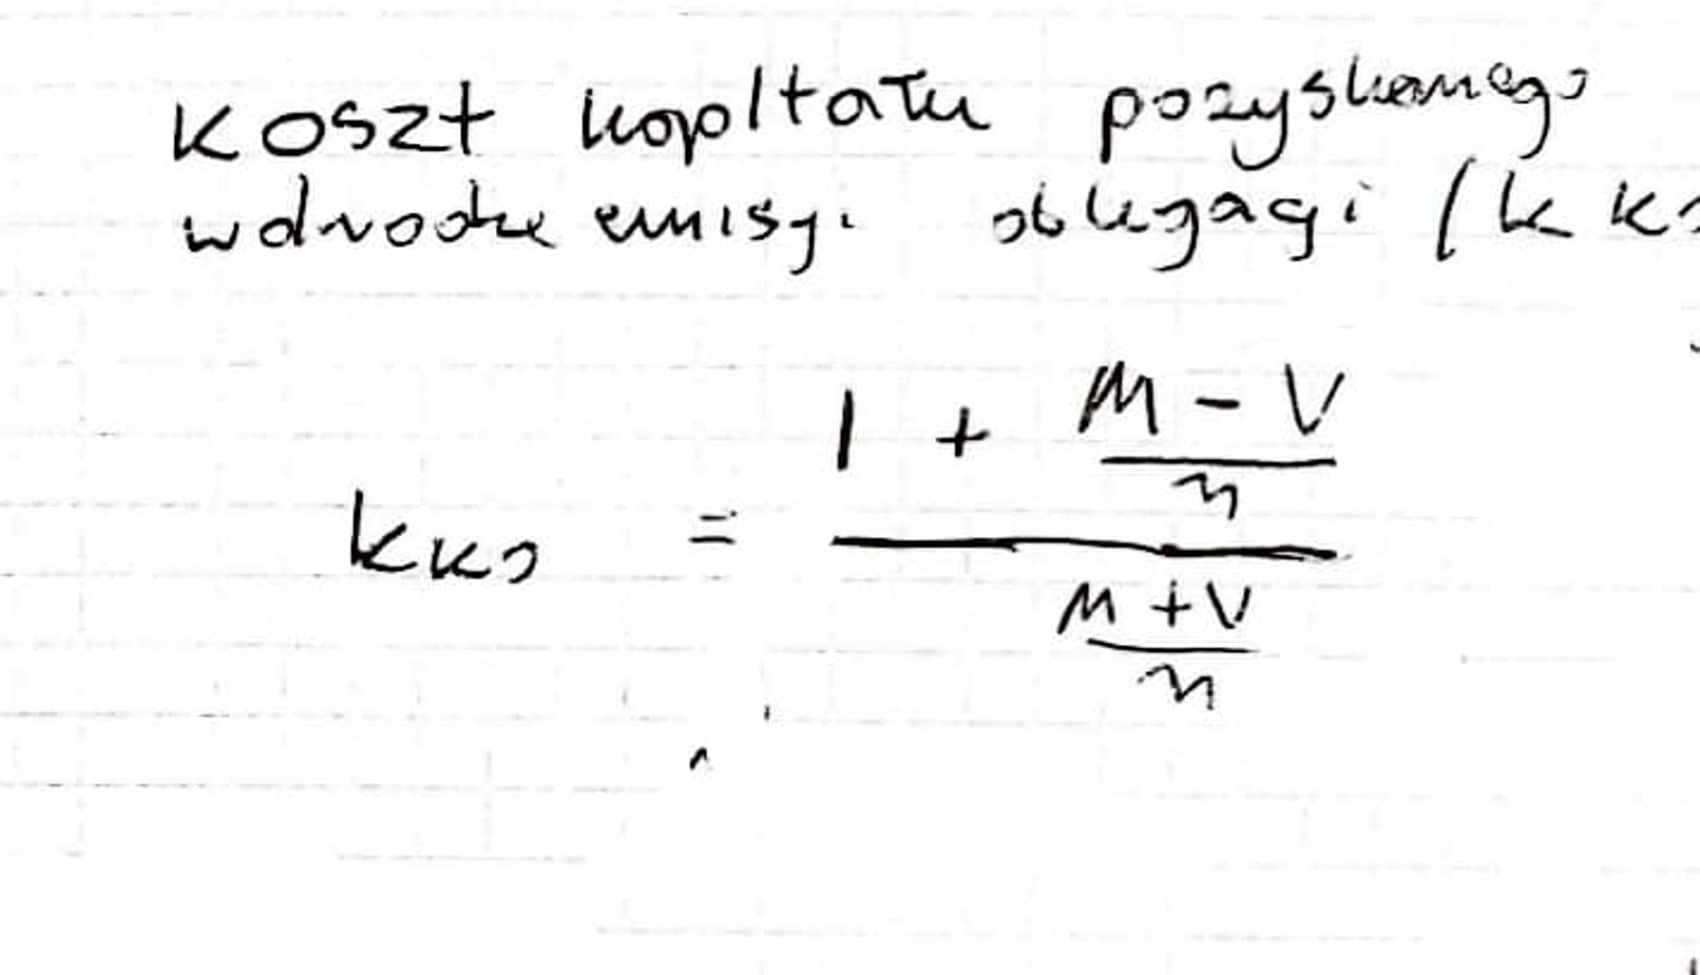 Koszt kapitału pozyskanego
w drodze emisji obligacji (k ko
k ko = (1 + (M - V)/n) / ((M + V)/n)